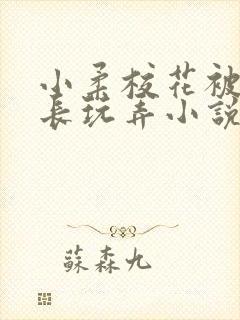 小柔校花被
長玩弄小說
蘇森九